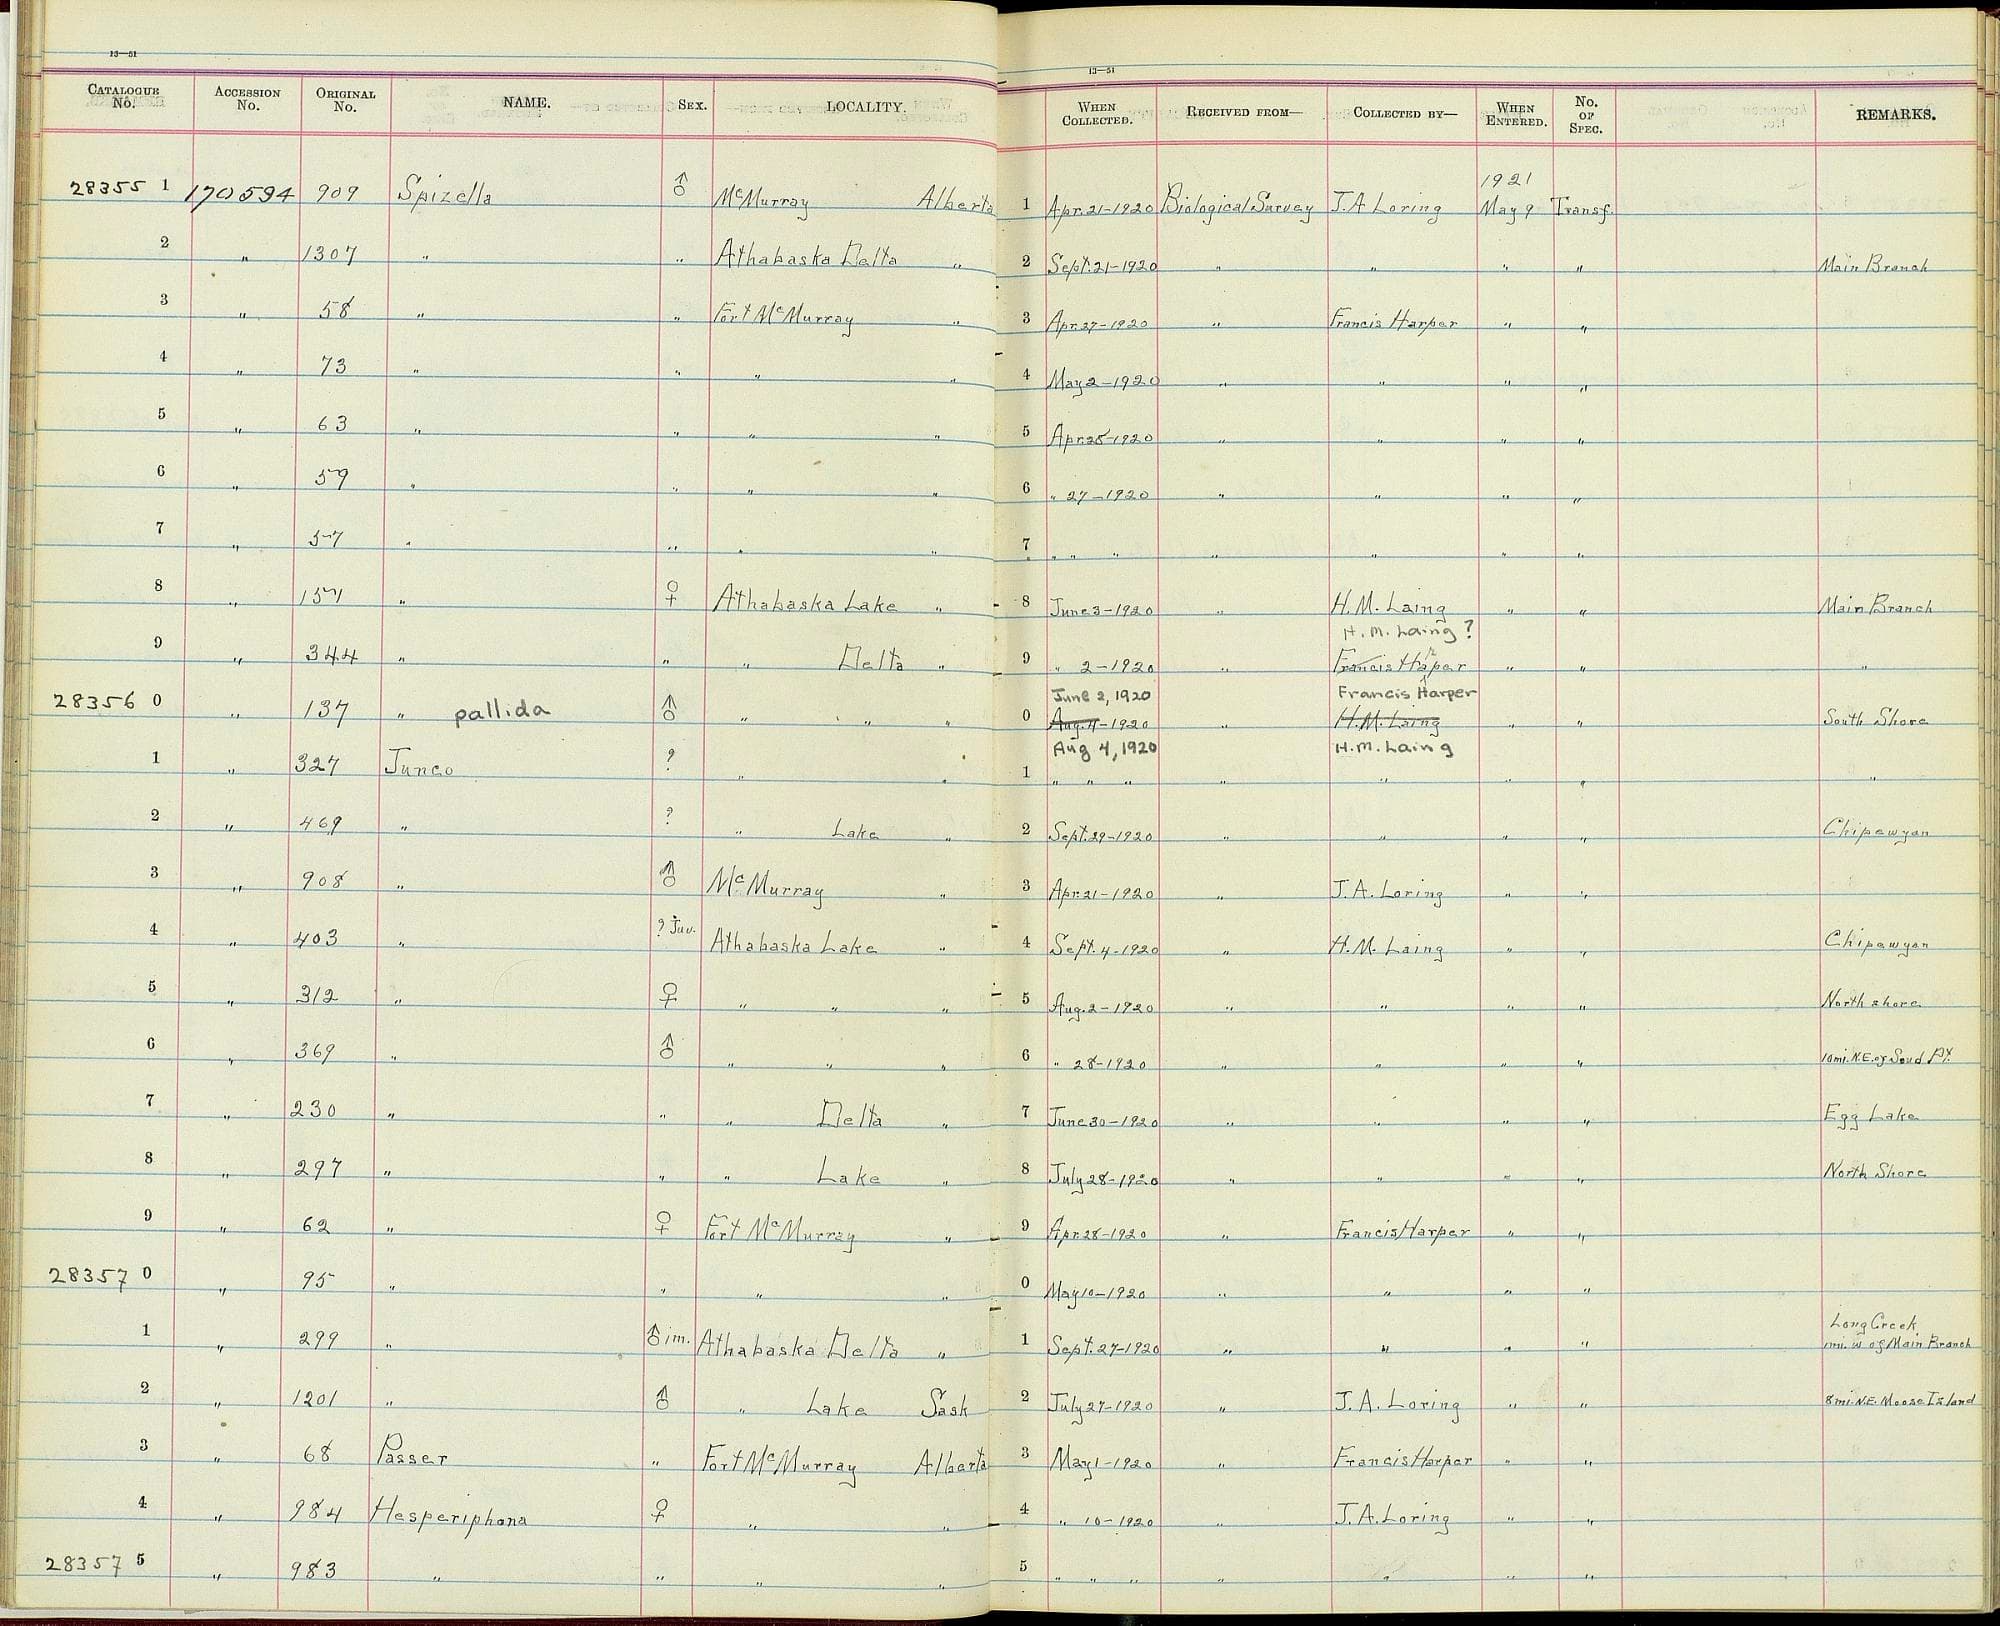 13—51
13—51
CATALOGUE No. ACCESSION No. ORIGINAL No. NAME. SEX. LOCALITY. WHEN COLLECTED. RECEIVED FROM— COLLECTED BY— WHEN ENTERED. No. OF SPEC. REMARKS.
1921
28355 1 170594 909 Spizella ♂ McMurray Alberta 1 Apr. 21-1920 Biological Survey J.A Loring May 9 Transf.
2 " 1307 " " Athabaska Delta " 2 Sept. 21-1920 " " " " Main Branch
3 " 58 " " Fort McMurray " 3 Apr. 27-1920 " Francis Harper " "
4 " 73 " " " " 4 May 2-1920 " " " "
5 " 63 " " " " 5 Apr. 28-1920 " " " "
6 " 59 " " " " 6 " 27-1920 " " " "
7 " 57 " " " " 7 " " " " " " "
8 " 151 " ♀ Athabaska Lake " 8 June 3-1920 " H.M. Laing " " Main Branch
H. M. Laing ?
9 " 344 " " " Delta " 9 " 2-1920 " Francis Harper " " "
June 2, 1920 Francis Harper
28356 0 " 137 " pallida ♂ " " " 0 Aug. 4-1920 " H.M. Laing " " South Shore
Aug 4, 1920 H.M. Laing
1 " 327 Junco ? " " 1 " " " " " " " "
2 " 469 " ? " Lake " 2 Sept. 29-1920 " " " " Chipewyan
3 " 908 " ♂ McMurray " 3 Apr. 21-1920 " J.A. Loring " "
4 " 403 " ? Juv. Athabaska Lake " 4 Sept. 4-1920 " H.M. Laing " " Chipewyan
5 " 312 " ♀ " " " 5 Aug. 2-1920 " " " " North shore
6 " 369 " ♂ " " " 6 " 28-1920 " " " " 10 mi. N.E. of Sand Pt.
7 " 230 " " " Delta " 7 June 30-1920 " " " " Egg Lake
8 " 297 " " " Lake " 8 July 28-1920 " " " " North Shore
9 " 62 " ♀ Fort McMurray " 9 Apr. 28-1920 " Francis Harper " "
28357 0 " 95 " " " " 0 May 10-1920 " " " "
Long Creek
1 " 299 " ♂ im. Athabaska Delta " 1 Sept. 27-1920 " " " " 1 mi. W of Main Branch
2 " 1201 " ♂ " Lake Sask 2 July 27-1920 " J.A. Loring " " 8 mi. N.E. Moose Island
3 " 68 Passer " Fort McMurray Alberta 3 May 1-1920 " Francis Harper " "
4 " 984 Hesperiphona ♀ " " 4 " 10-1920 " J.A. Loring " "
28357 5 " 983 " " " " 5 " " " " " " "